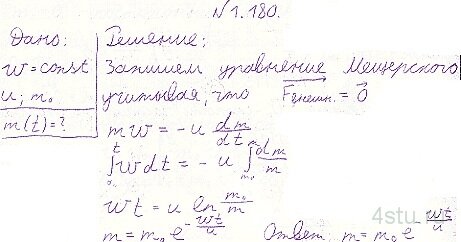 №1.180.
Дано: Решение:
w = const Запишем уравнение Мещерского
u; m₀ учитывая, что F⃗внешн. = 0⃗
m(t) = ?
mw = -u dm/dt
∫₀ᵗ w dt = -u ∫ₘ₀ᵐ dm/m
wt = u ln m₀/m
m = m₀ e^(-wt/u) Ответ: m = m₀ e^(-wt/u)
4stu